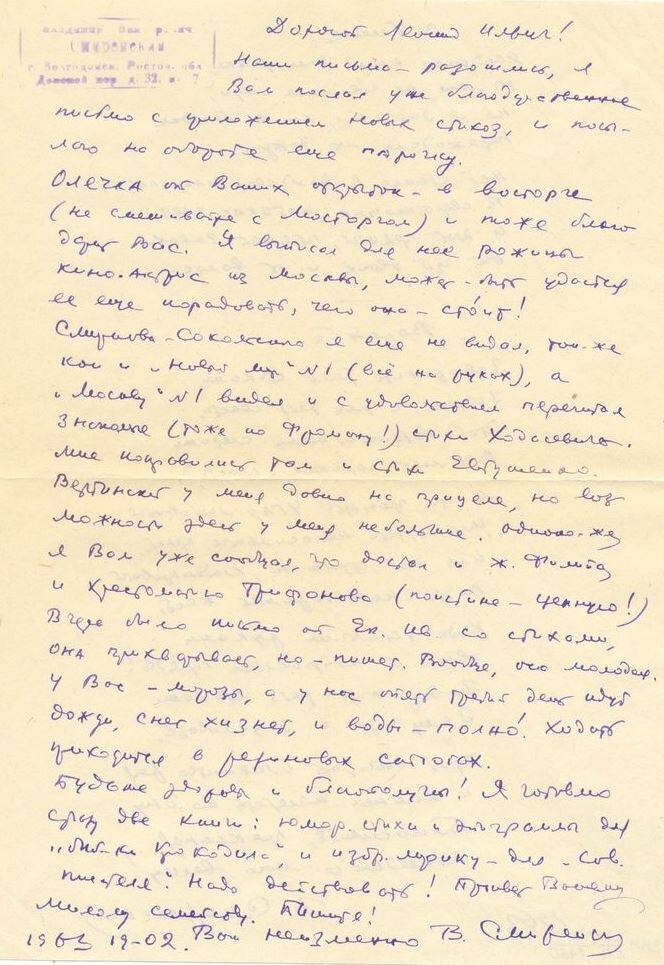 Владимир Викторович
СМИРЕНСКИЙ
г. Волгодонск, Ростов. обл
Донской пер. д. 32, 7
Дорогой Леонид Ильич!
Наши письма – разошлись, я
Вам послал уже благодарственное
письмо с приложением новых стихов, и посы-
лаю на обороте еще парочку.
Олечка от Ваших открыток – в восторге
(не смешивайте с Мосторгом) и тоже благо
дарит Вас. Я выписал для нее рожицы
кино-актрис из Москвы, может быть удастся
ее еще порадовать, чего она – стóит!
Смирнова-Сокольского я еще не видал, так-же
как и „Новый мир" №1 (всё на руках), а
„Москву" №1 видел и с удовольствием перечитал
знакомые (тоже по !) стихи Ходасевича.
Мне понравились там и стихи Евтушенко.
Вертинский у меня давно на прицеле, но воз
можности здесь у меня небольшие. Однако-же,
я Вам уже сообщал, что достал и ж.
и хрестоматию Трифонова (поистине – ценную!)
Вчера было письмо от Ек. Ив. со стихами,
она прихварывает, но – пишет. Вообще, она молодец.
У Вас – морозы, а у нас опять третий день идут
дожди, снег , и воды – полно! Ходить
приходится в резиновых сапогах.
Будьте здоровы и благополучны! Я готовлю
сразу две книги: юмор. стихи и эпиграммы для
„биб-ки Крокодила", и избр. лирику – для „Сов.
писателя". Надо действовать! Привет Вашему
милому семейству. Пишите!
1963 19-02. Ваш неизменно В. Смиренский